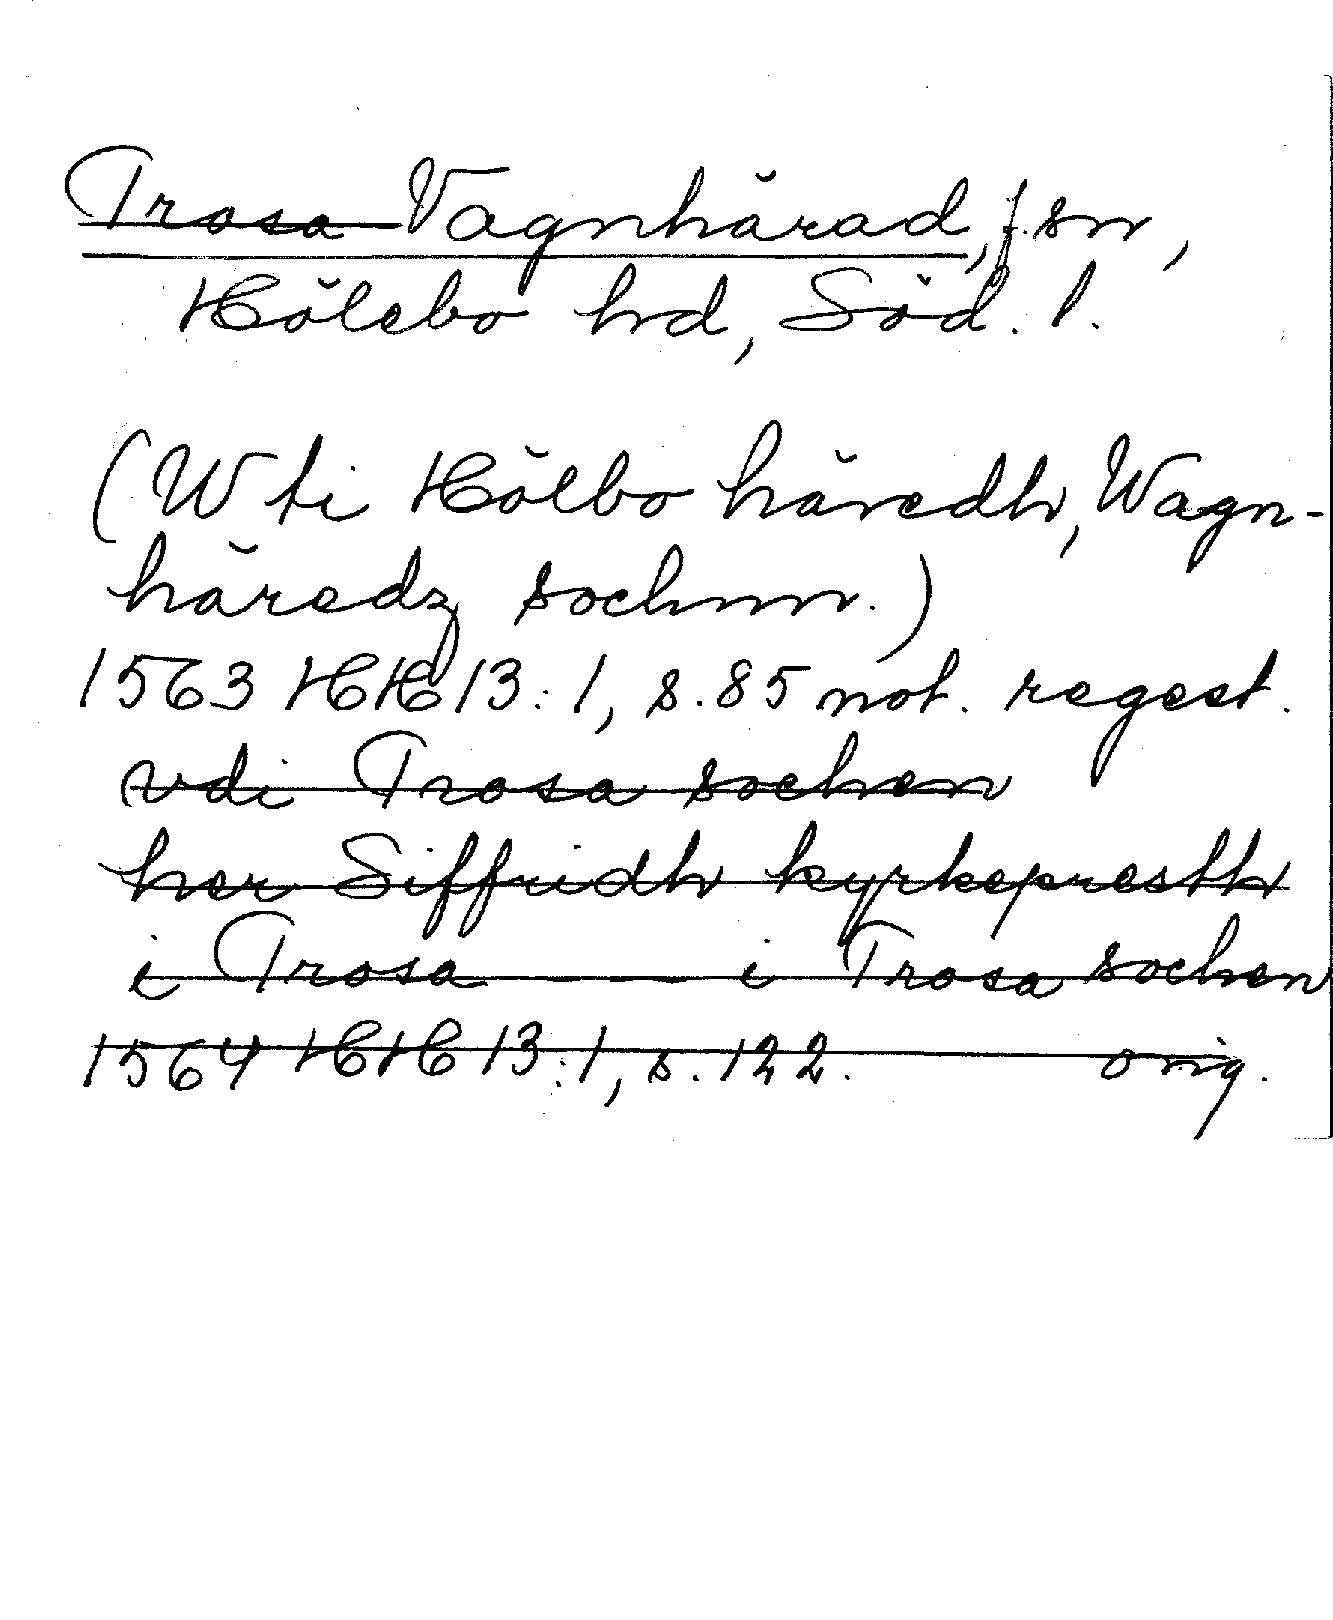 Trosa Vagnhärad, f. sn,
Hölebo hd, Söd. l.
(W ti Hölbo häredh, Wagn-
häredz sochnn.)
1563 HH 13:1, s. 85 not. regest.
vdi Trosa sochen
her Siffridh kyrkepresth
i Trosa — i Trosa sochen
1564 HH 13:1, s. 122. orig.